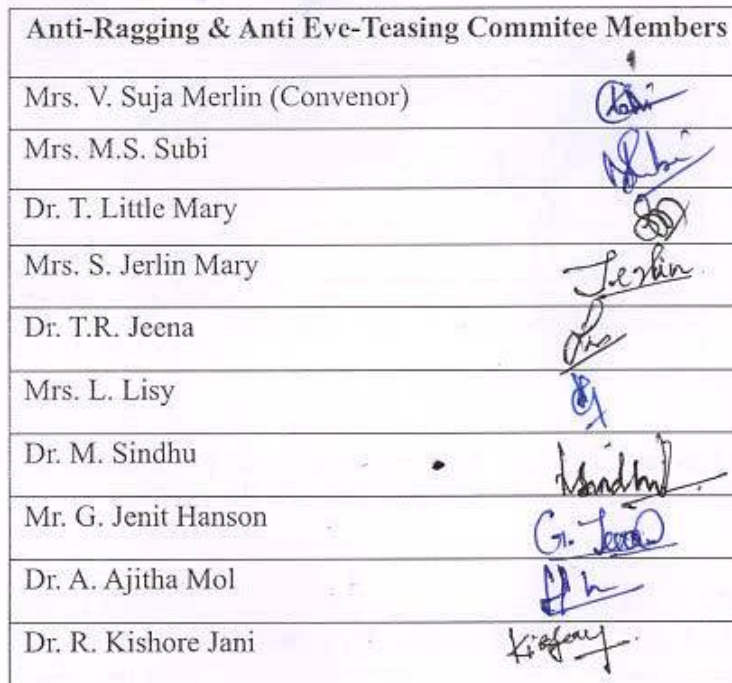 Anti-Ragging & Anti Eve-Teasing Commitee Members
Mrs. V. Suja Merlin (Convenor)
Mrs. M.S. Subi
Dr. T. Little Mary
Mrs. S. Jerlin Mary Jerlin
Dr. T.R. Jeena
Mrs. L. Lisy
Dr. M. Sindhu
Mr. G. Jenit Hanson
Dr. A. Ajitha Mol
Dr. R. Kishore Jani